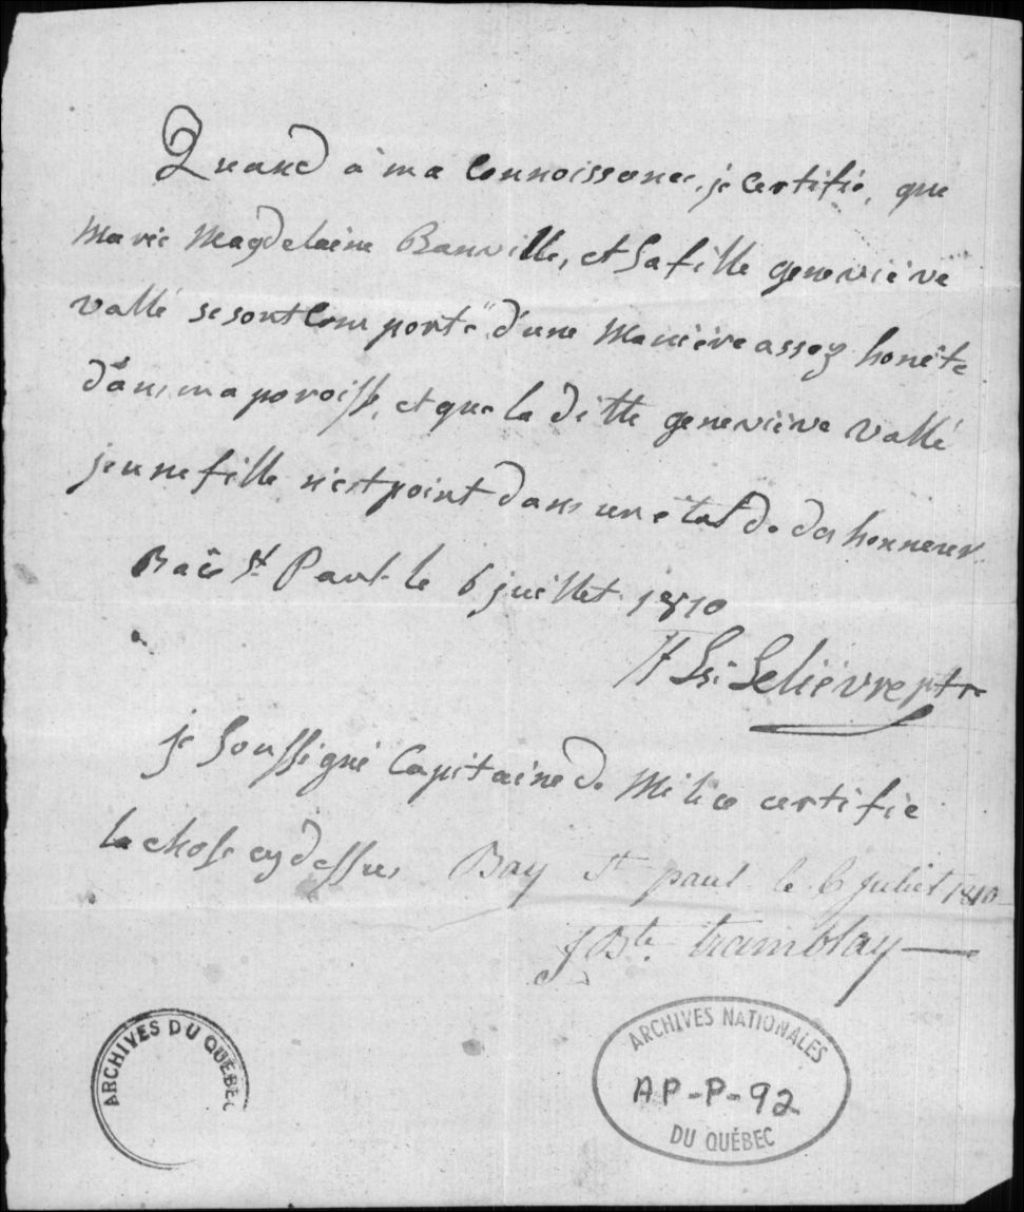 Quand à ma Connoissance, je certifié, que
Marie Magdelaine Banville, et Sa fille geneviève
vallé se sont Comporté d'une Manière assez honête
dans ma paroisse, et que la ditte geneviève vallé
jeune fille n'est point dans un état de deshonneur
Baîe St Paul le 6 juillet 1810
Lelièvre ptre
je Soussigné Capitaine de Milice certifie
la chose cy dessus Bay St paul le 6 juliet 1810
J Bte tramblay
ARCHIVES DU QUÉBEC
ARCHIVES NATIONALES
AP-P-92
DU QUÉBEC